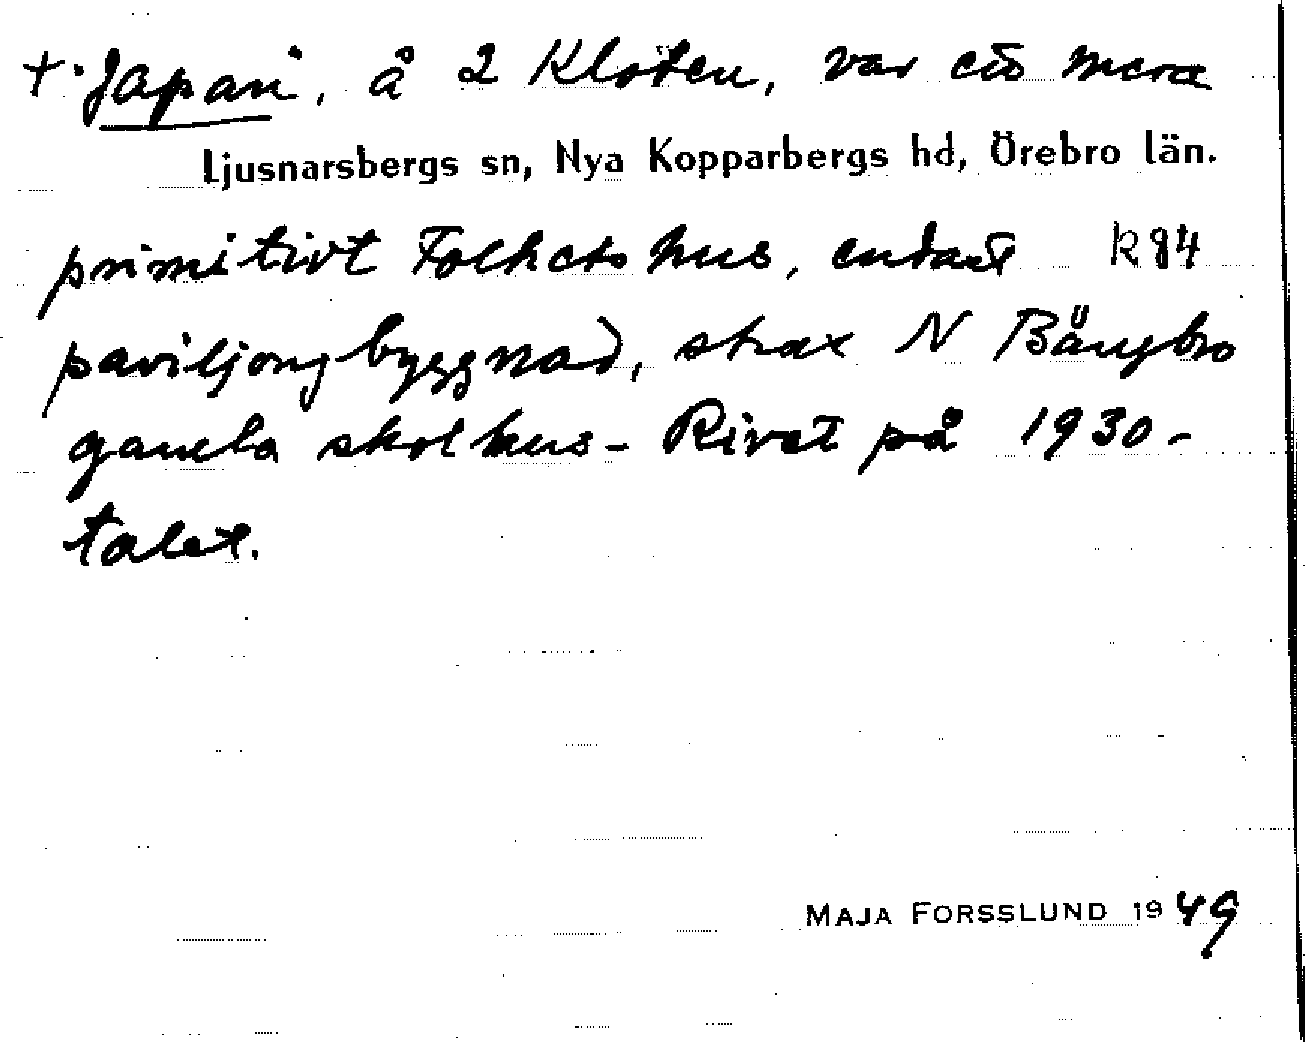 † "Japan", å 2 Klöten, var ett mera
Ljusnarsbergs sn, Nya Kopparbergs hd, Örebro län.
primitivt Folkets hus, endast R 84
paviljongbyggnad, strax N Bångbro
gamla skolhus - Rivet på 1930-
talet.
MAJA FORSSLUND 1949